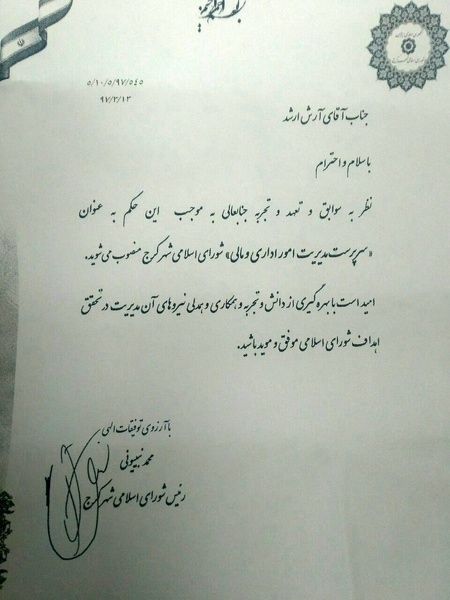 ۵/۱۰/۵/۹۷/۵۴۵
۹۷/۲/۱۳
جناب آقای آرش ارشد
با سلام و احترام
نظر به سوابق و تعهد و تجربه جنابعالی به موجب این حکم به عنوان
«سرپرست مدیریت امور اداری و مالی» شورای اسلامی شهر کرج منصوب می شوید.
امید است با بهره گیری از دانش و تجربه و همکاری و همدلی نیروهای آن مدیریت در تحقق
اهداف شورای اسلامی موفق و موید باشید.
با آرزوی توفیقات الهی
محمد نبیونی
رئیس شورای اسلامی شهر کرج